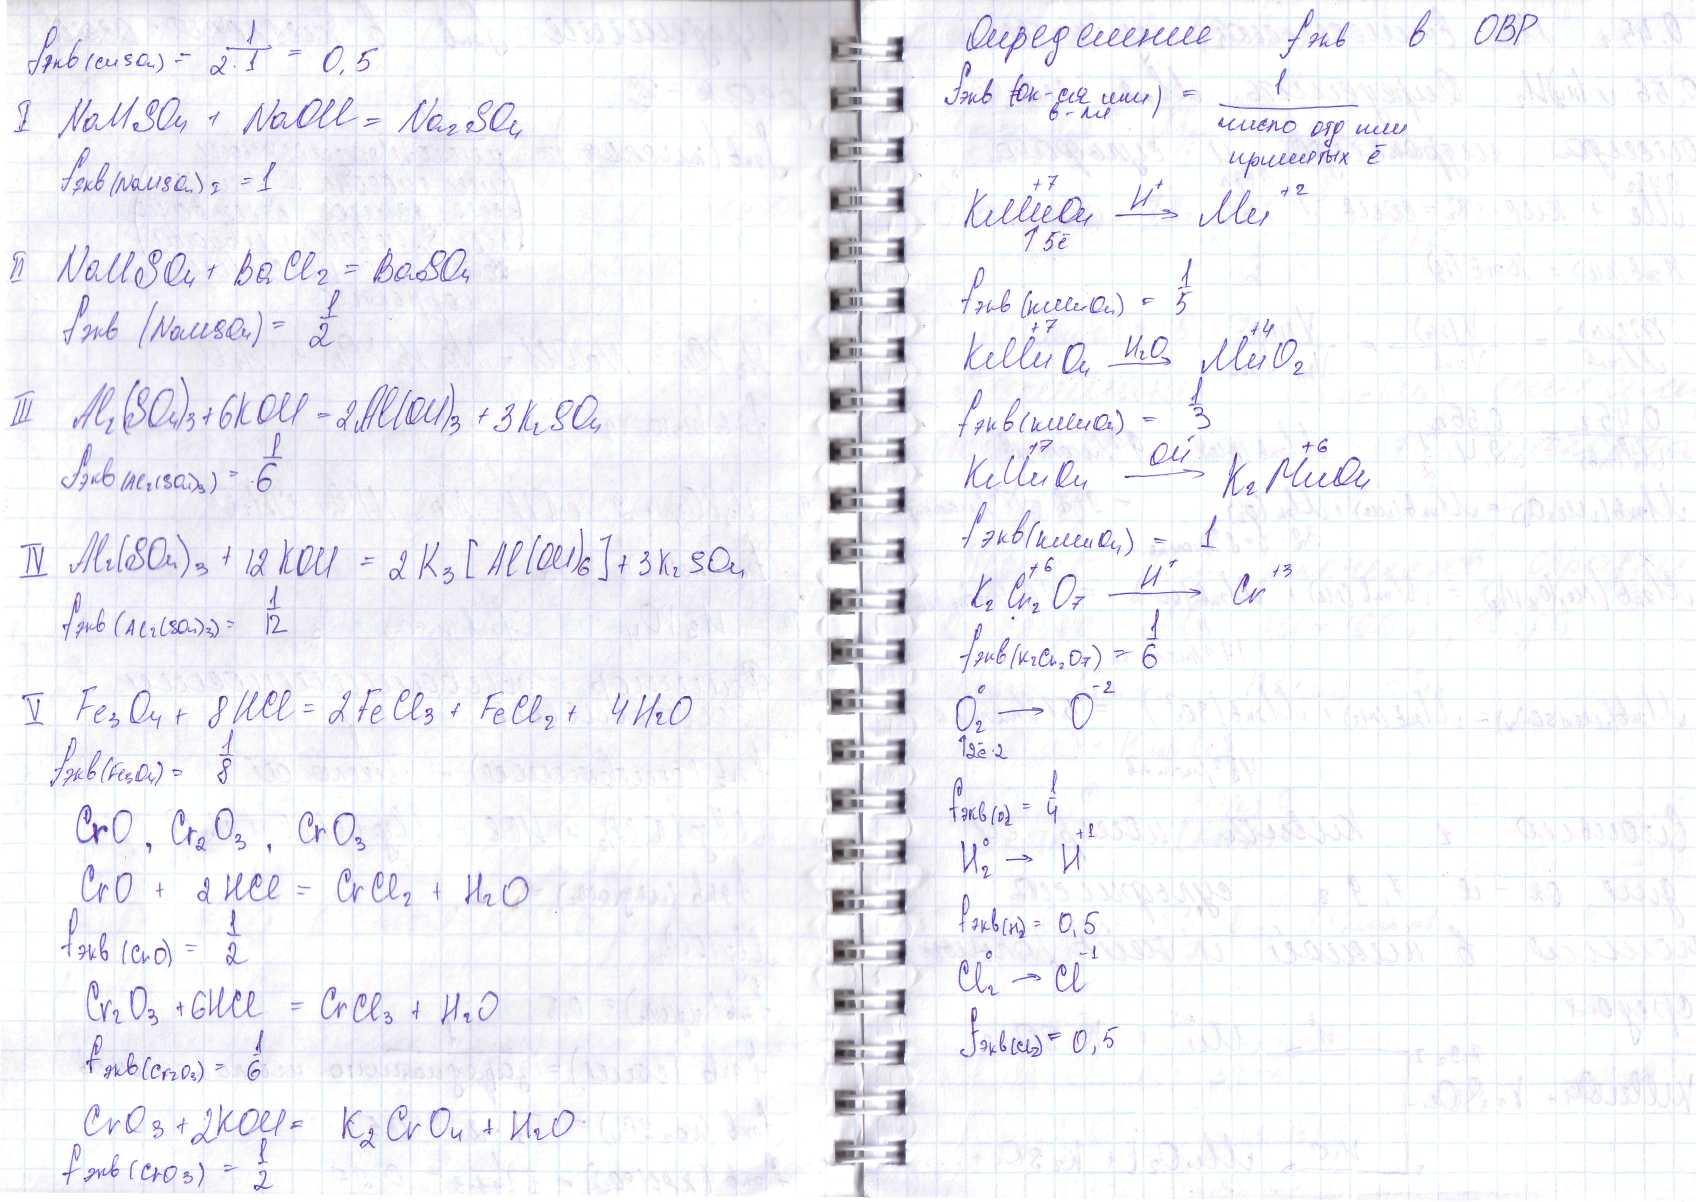 fэкв(CuSO₄) = 1/(2·1) = 0,5
I NaHSO₄ + NaOH = Na₂SO₄
fэкв(NaHSO₄) = 1
II NaHSO₄ + BaCl₂ = BaSO₄
fэкв (NaHSO₄) = 1/2
III Al₂(SO₄)₃ + 6KOH = 2Al(OH)₃ + 3K₂SO₄
fэкв(Al₂(SO₄)₃) = 1/6
IV Al₂(SO₄)₃ + 12KOH = 2K₃[Al(OH)₆] + 3K₂SO₄
fэкв(Al₂(SO₄)₃) = 1/12
V Fe₃O₄ + 8HCl = 2FeCl₃ + FeCl₂ + 4H₂O
fэкв(Fe₃O₄) = 1/8
CrO, Cr₂O₃, CrO₃
CrO + 2HCl = CrCl₂ + H₂O
fэкв(CrO) = 1/2
Cr₂O₃ + 6HCl = CrCl₃ + H₂O
fэкв(Cr₂O₃) = 1/6
CrO₃ + 2KOH = K₂CrO₄ + H₂O
fэкв(CrO₃) = 1/2
Определение fэкв в ОВР
fэкв (ок-ля или в-ля) = 1/(число отд или принятых ē)
+7 H⁺ +2
KMnO₄ → Mn
↑5ē
fэкв(KMnO₄) = 1/5
+7 H₂O +4
KMnO₄ → MnO₂
fэкв(KMnO₄) = 1/3
+7 OH⁻ +6
KMnO₄ → K₂MnO₄
fэкв(KMnO₄) = 1
+6 H⁺ +3
K₂Cr₂O₇ → Cr
fэкв(K₂Cr₂O₇) = 1/6
O₂⁰ → O⁻²
↑2ē·2
fэкв(O₂) = 1/4
H₂⁰ → H⁺¹
fэкв(H₂) = 0,5
Cl₂⁰ → Cl⁻¹
fэкв(Cl₂) = 0,5